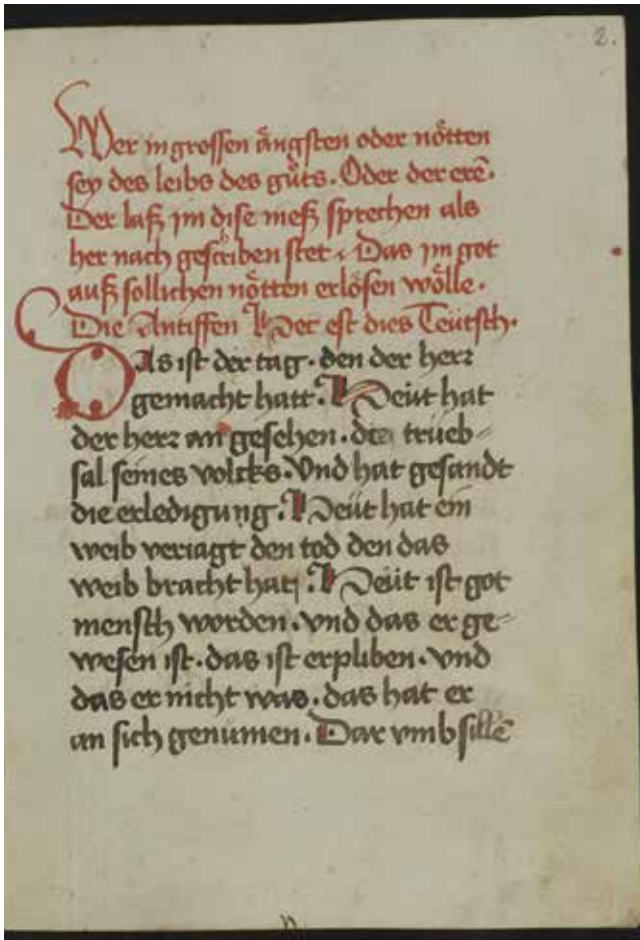 2.
Wer in grossen ångsten oder nőtten
sey des leibs des gůts. Oder der erē.
Der laß im dise meß sprechen als
her nach gescriben stet. Das im got
auß sollichen nőtten erlősen wőlle.
Die Antiffen Hec est dies Teütsch.
Das ist der tag. den der herr
gemacht hatt. Heüt hat
der herr an gesehen. die trüeb-
sal seines volcks. Vnd hat gesandt
die erledigung. Heüt hat ein
weib veriagt den tod den das
weib bracht hat. Heüt ist got
mensch worden. vnd das er ge-
wesen ist. das ist erpliben. vnd
das er nicht was. das hat er
an sich genumen. Dar vmb süllē